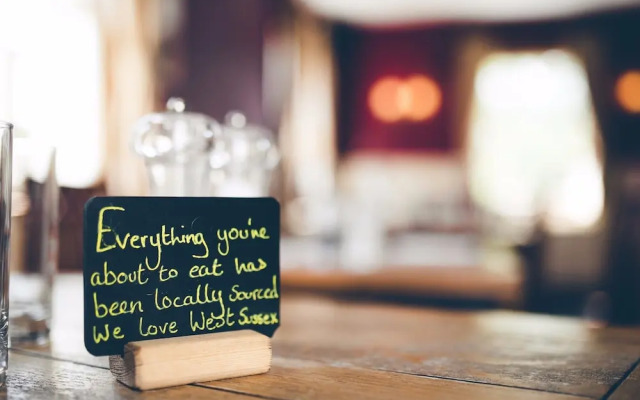 Everything you're
about to eat has
been locally sourced
We love West Sussex